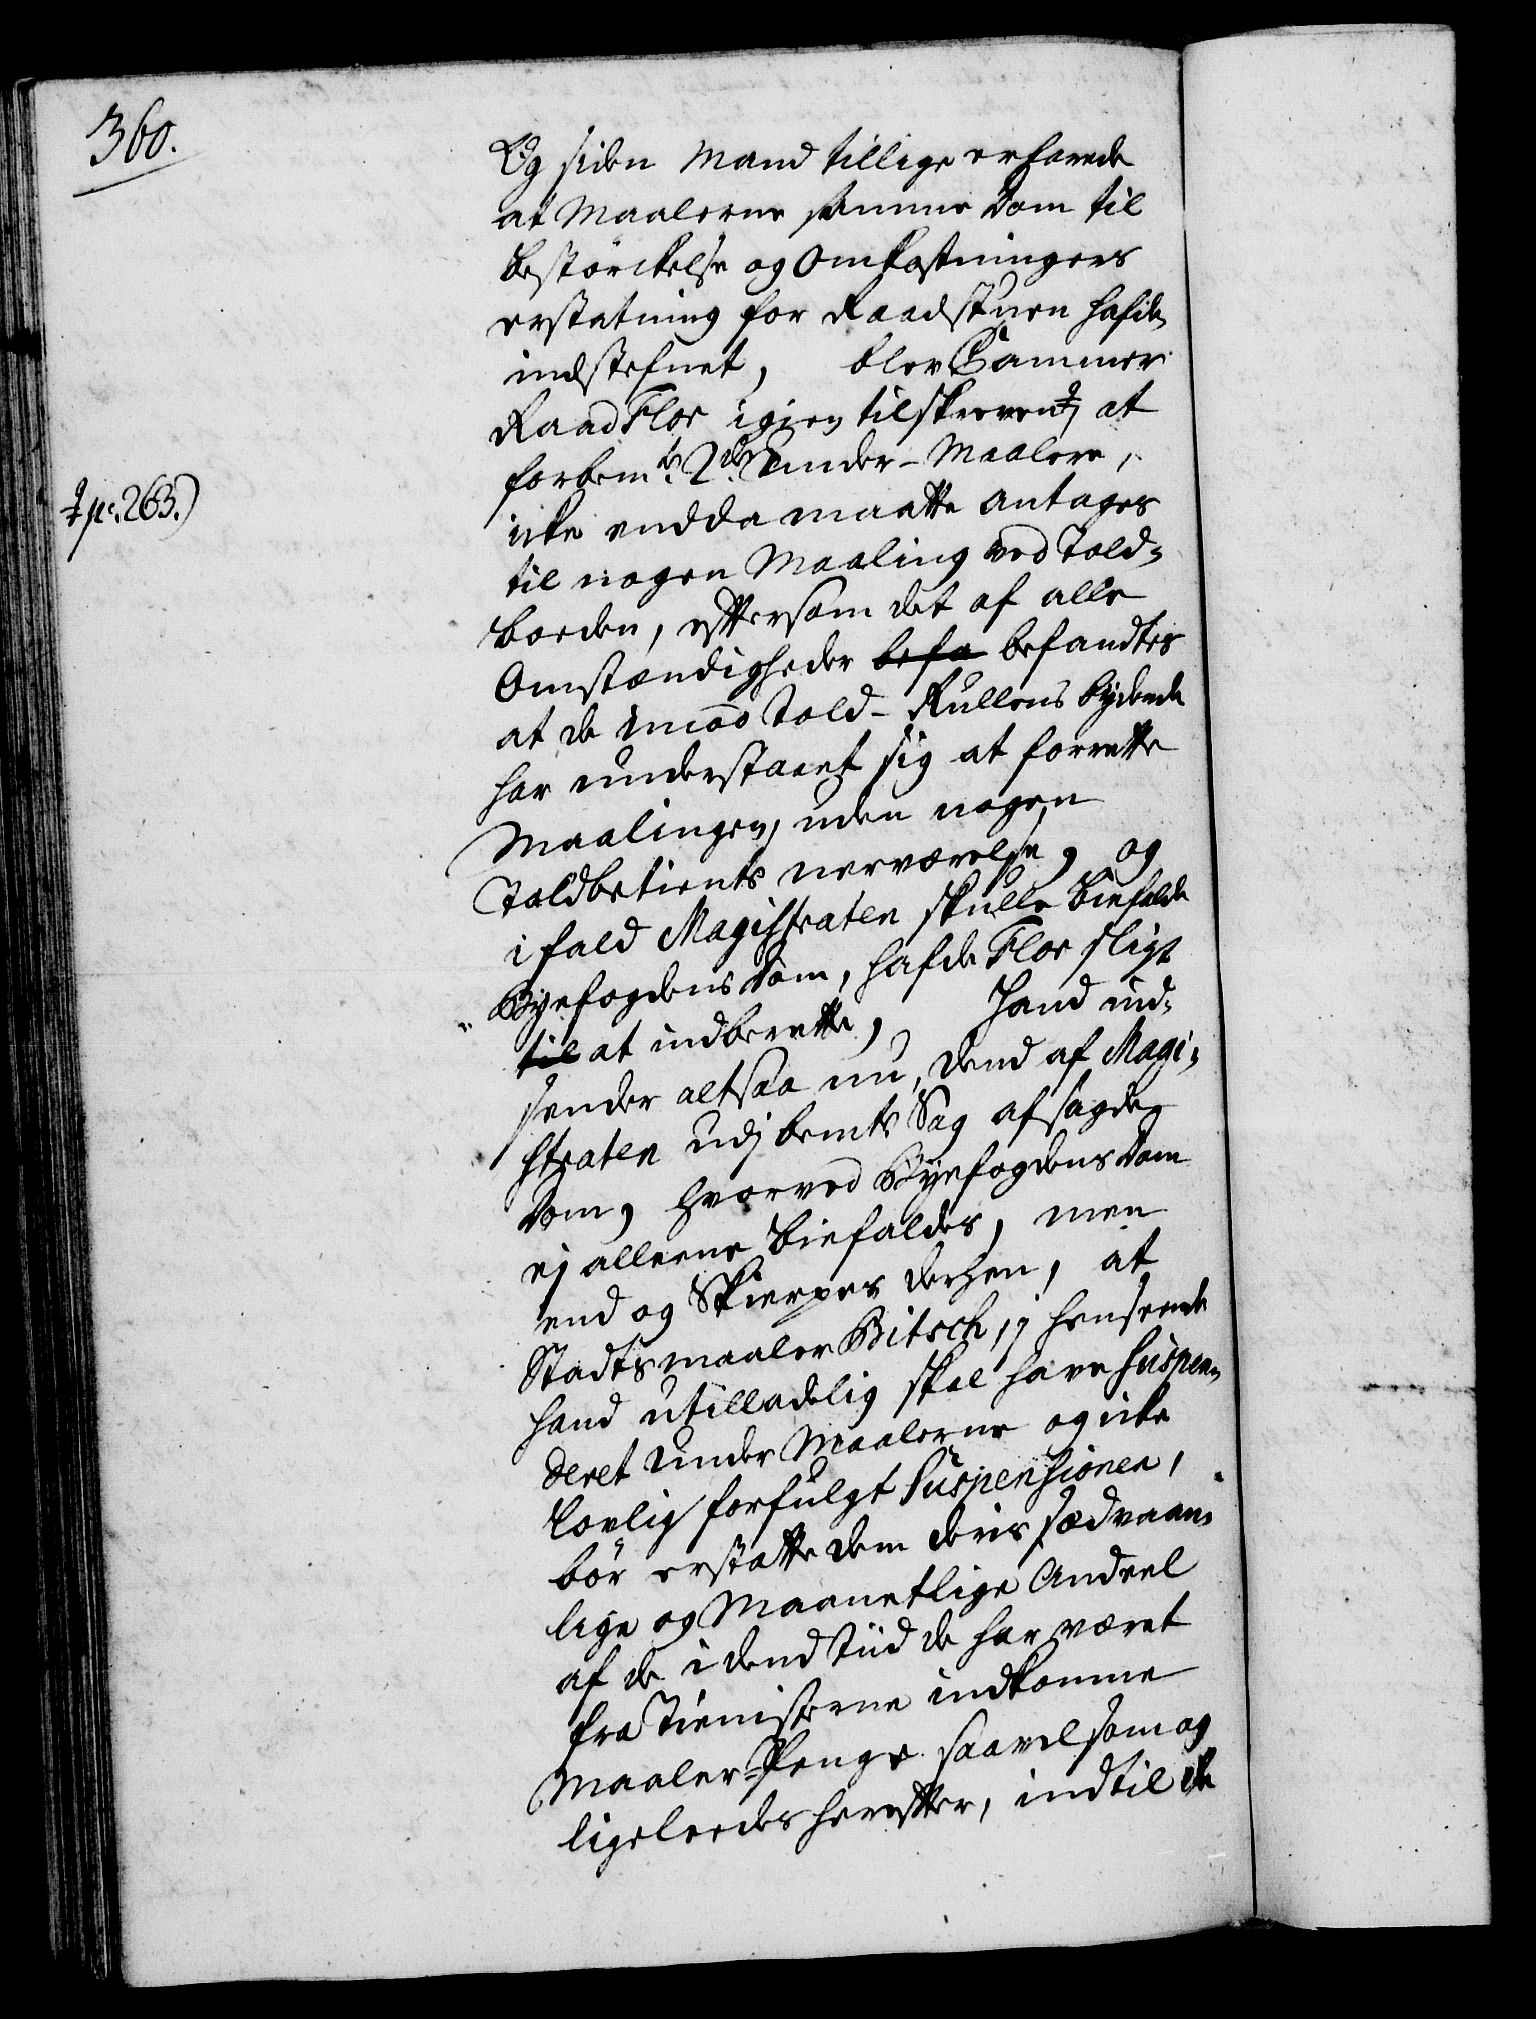 360.
Og siden Mand tillige erfarede
at Maalerne samme Dom til
bestørckelse og Omkostningers
erstatning for Raadstuen hafde
indstefnet, blev Cammer
Raad Flor igien tilskreven ⚥ at
forbemte 2de Under-Maalere,
icke endda maatte antages
⚥ pc. 263.)
til nogen Maaling ved Told-
boeden, efftersom det af alle
Omstændigheder befa befandtes
at de imod Told-Rullens bydende
har understaaet sig at forrette
Maalingen, uden nogen
Toldbetients nerværelse, og
ifald Magistraten skulle biefalde
Byefogdens Dom, hafde Flor sligt
til at indberette, Hand ind-
sender altsaa nu, dend af Magi-
straten udj bemte Sag afsagde
Dom, hvorved Byefogdens Dom
ej alleene biefaldes, men
end og Skierpes derhen, at
Stadtsmaaler Bitsch, j henseende
hand utilladelig skal have suspen-
deret Under Maalerne og icke
lovlig forfulgt Suspensionen,
bør erstatte dem deris sædvaan-
lige og Maanetlige Andeel
af de i dend Tiid de har været
fra Tienisterne indkomne
Maaler-Penge saavelsom og
ligeleedes herefter, indtil de